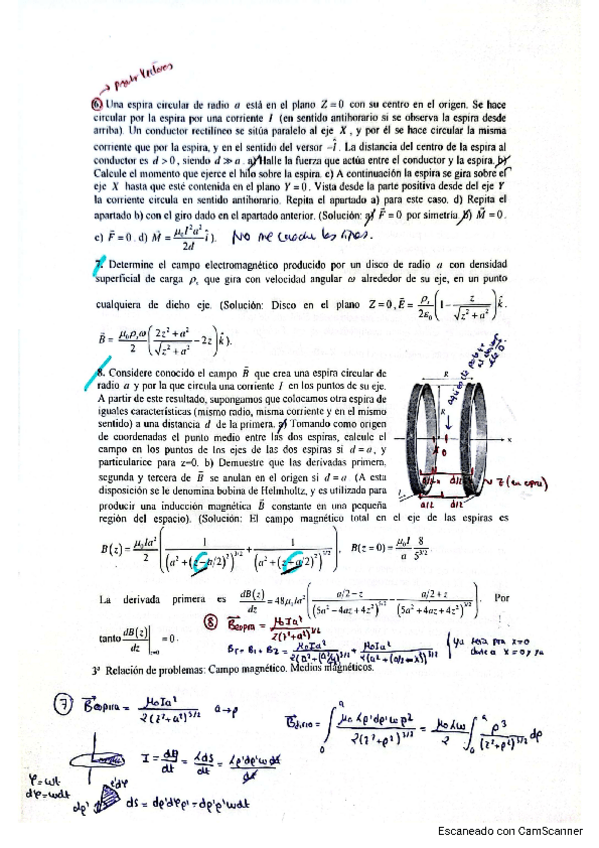 → poner vectores
6. Una espira circular de radio a está en el plano Z = 0 con su centro en el origen. Se hace
circular por la espira por una corriente I (en sentido antihorario si se observa la espira desde
arriba). Un conductor rectilíneo se sitúa paralelo al eje X, y por él se hace circular la misma
corriente que por la espira, y en el sentido del versor -î. La distancia del centro de la espira al
conductor es d > 0, siendo d ≫ a. a) Halle la fuerza que actúa entre el conductor y la espira. b)
Calcule el momento que ejerce el hilo sobre la espira. c) A continuación la espira se gira sobre el
eje X hasta que esté contenida en el plano Y = 0. Vista desde la parte positiva desde del eje Y
la corriente circula en sentido antihorario. Repita el apartado a) para este caso. d) Repita el
apartado b) con el giro dado en el apartado anterior. (Solución: a) F⃗ = 0 por simetría. b) M⃗ = 0.
c) F⃗ = 0. d) M⃗ = μ₀I²a²/2d î). No me
7. Determine el campo electromagnético producido por un disco de radio a con densidad
superficial de carga ρₛ que gira con velocidad angular ω alrededor de su eje, en un punto
cualquiera de dicho eje. (Solución: Disco en el plano Z = 0, E⃗ = ρₛ/2ε₀ (1 - z/√(z² + a²)) k̂.
B⃗ = μ₀ρₛω/2 ((2z² + a²)/√(z² + a²) - 2z) k̂).
8. Considere conocido el campo B⃗ que crea una espira circular de
radio a y por la que circula una corriente I en los puntos de su eje.
A partir de este resultado, supongamos que colocamos otra espira de
iguales características (mismo radio, misma corriente y en el mismo
sentido) a una distancia d de la primera. a) Tomando como origen
de coordenadas el punto medio entre las dos espiras, calcule el
campo en los puntos de los ejes de las dos espiras si d = a, y
particularice para z=0. b) Demuestre que las derivadas primera,
segunda y tercera de B⃗ se anulan en el origen si d = a (A esta
disposición se le denomina bobina de Helmholtz, y es utilizado para
producir una inducción magnética B⃗ constante en una pequeña
región del espacio). (Solución: El campo magnético total en el eje de las espiras es
R
R
x
0
d/2
a/2
d/2
z (en espira)
B(z) = μ₀Ia²/2 (1/(a² + (z - a/2)²)^3/2 + 1/(a² + (z + a/2)²)^3/2), B(z = 0) = μ₀I/a 8/5^3/2
La derivada primera es dB(z)/dz = 48μ₀Ia² ((a/2 - z)/(5a² - 4az + 4z²)^5/2 - (a/2 + z)/(5a² + 4az + 4z²)^5/2). Por
tanto dB(z)/dz |z=0 = 0.
8 B⃗espira = μ₀Ia²/2(z² + a²)^3/2
3ª Relación de problemas: Campo magnético. Medios magnéticos.
7 B⃗espira = μ₀Ia²/2(z² + a²)^3/2 a → ρ
I = dq/dt
φ = ωt
dφ = ωdt
dS = dρ'dφρ' = dρ'ρ'ωdt
Escaneado con CamScanner